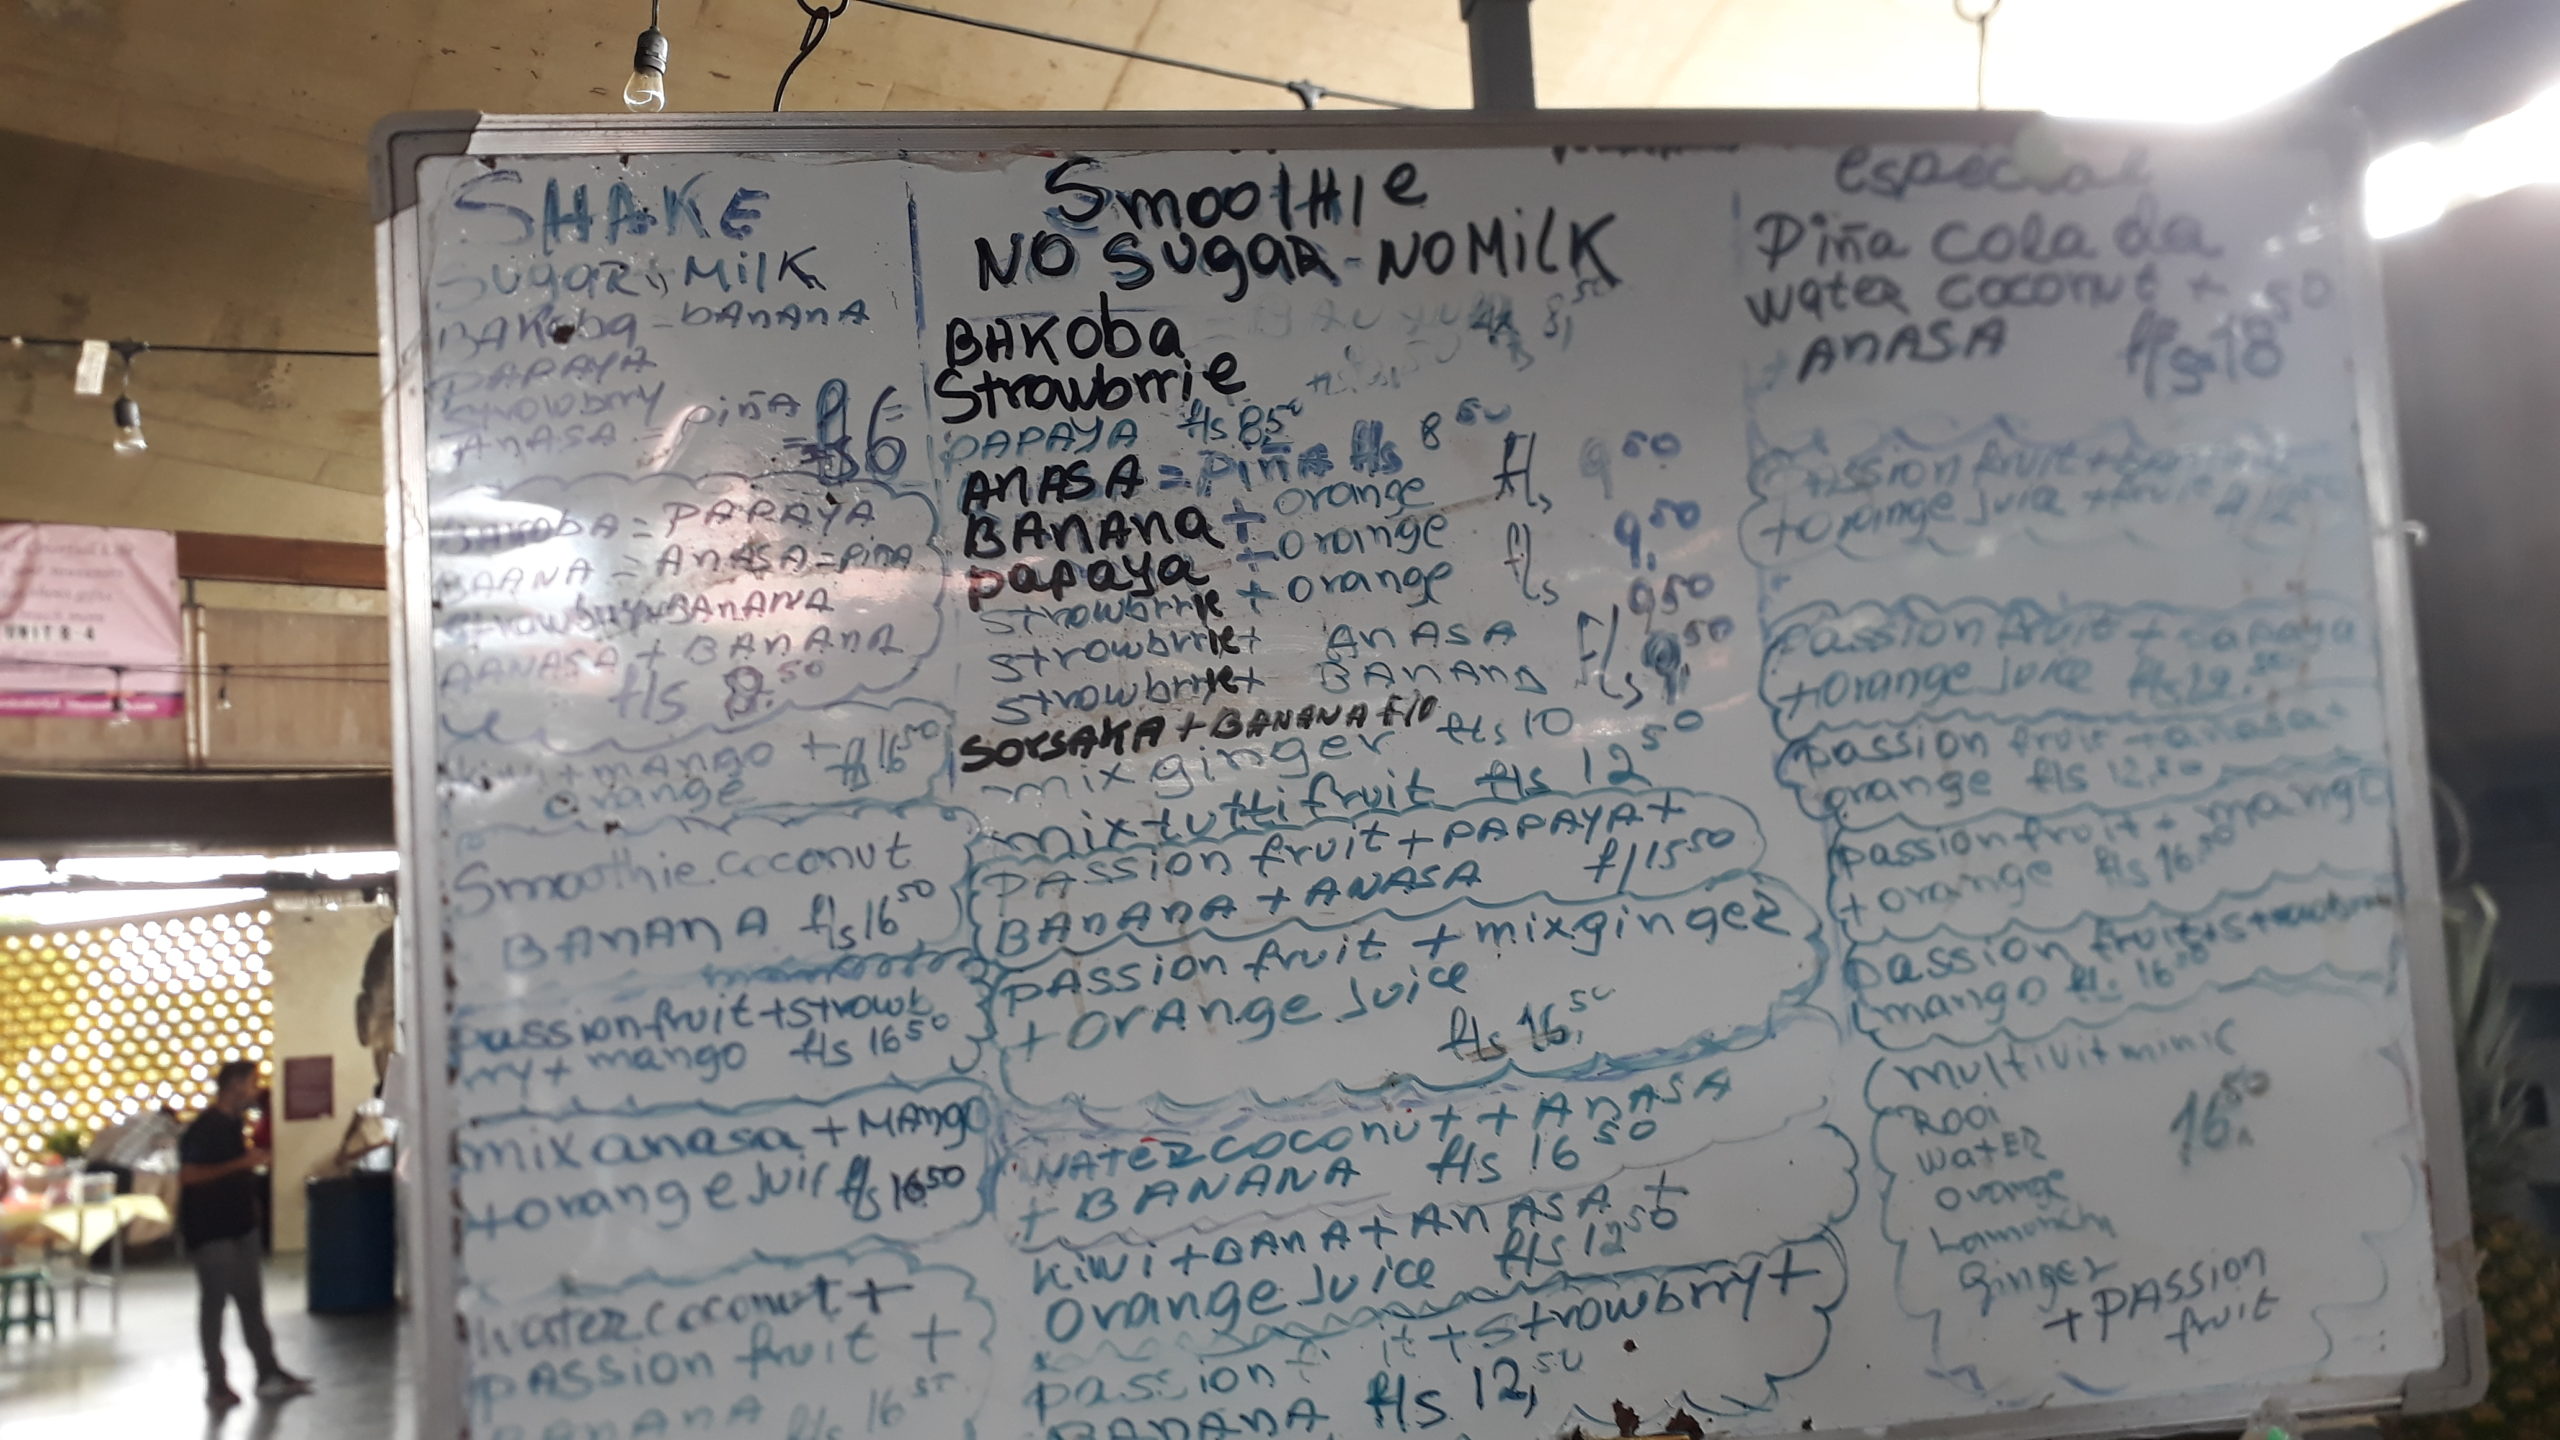 SHAKE
SUGAR, MilK
BAKoba - bAnAnA
PAPAYA
Strowbrry
AnASA = piñA
= fls 6
BAKoBA = PAPAYA
BAANA = AnASA = piñA
Strowbrry BAnAnA
AANASA + BAnAnA
fls 8.50
kiwi + mango + fls 16 50
orange
Smoothie coconut
BAnAnA fls 16 50
passion fruit + Strowb
rry + mango fls 16 50
mix anasa + MAngo
+ orange Juic fls 16 50
Water coconut +
PASSion fruit +
BAnAnA fls 16
SmootHIe
NO SugaR - NO MilK
BAKoba
Strowbrrie
PAPAYA fls 8 50
ANASA = piña fls 8 50
BANAna + orange fls 9 50
papaya + orange fls 9,50
Strowbrrie + orange 9 50
Strowbrrie + AnASA Fls 9,50
Strowbrrie + BAnAnA
SorSAKA + BANANA F 10
mix ginger fls 10
mix tutti fruit fls 12 50
PASSion fruit + PAPAYA +
BAnAnA + ANASA fl 15 50
PASSion fruit + mix ginger
+ OrAnge Juice
fls 16,50
WATER coconut + AnASA
+ BANANA fls 16 50
Kiwi + BAnA + AnASA +
Orange Juice fls 12 50
passion + Strowbrry +
BAnAnA fls 12,50
especial
Piña cola da
water coconut +
ANASA fls 18 50
passion fruit +
+ orange Juice +
passion fruit + papaya
+ orange Juice fls 12.50
passion fruit + anasa +
orange fls 12.50
passion fruit + mango
+ orange fls 16.50
passion fruit +
mango fl. 16 50
multivitminic
Rooi 16.50
WATER
orange
Lamunchi
ginger
+ PASSion
fruit
UNIT 6-4